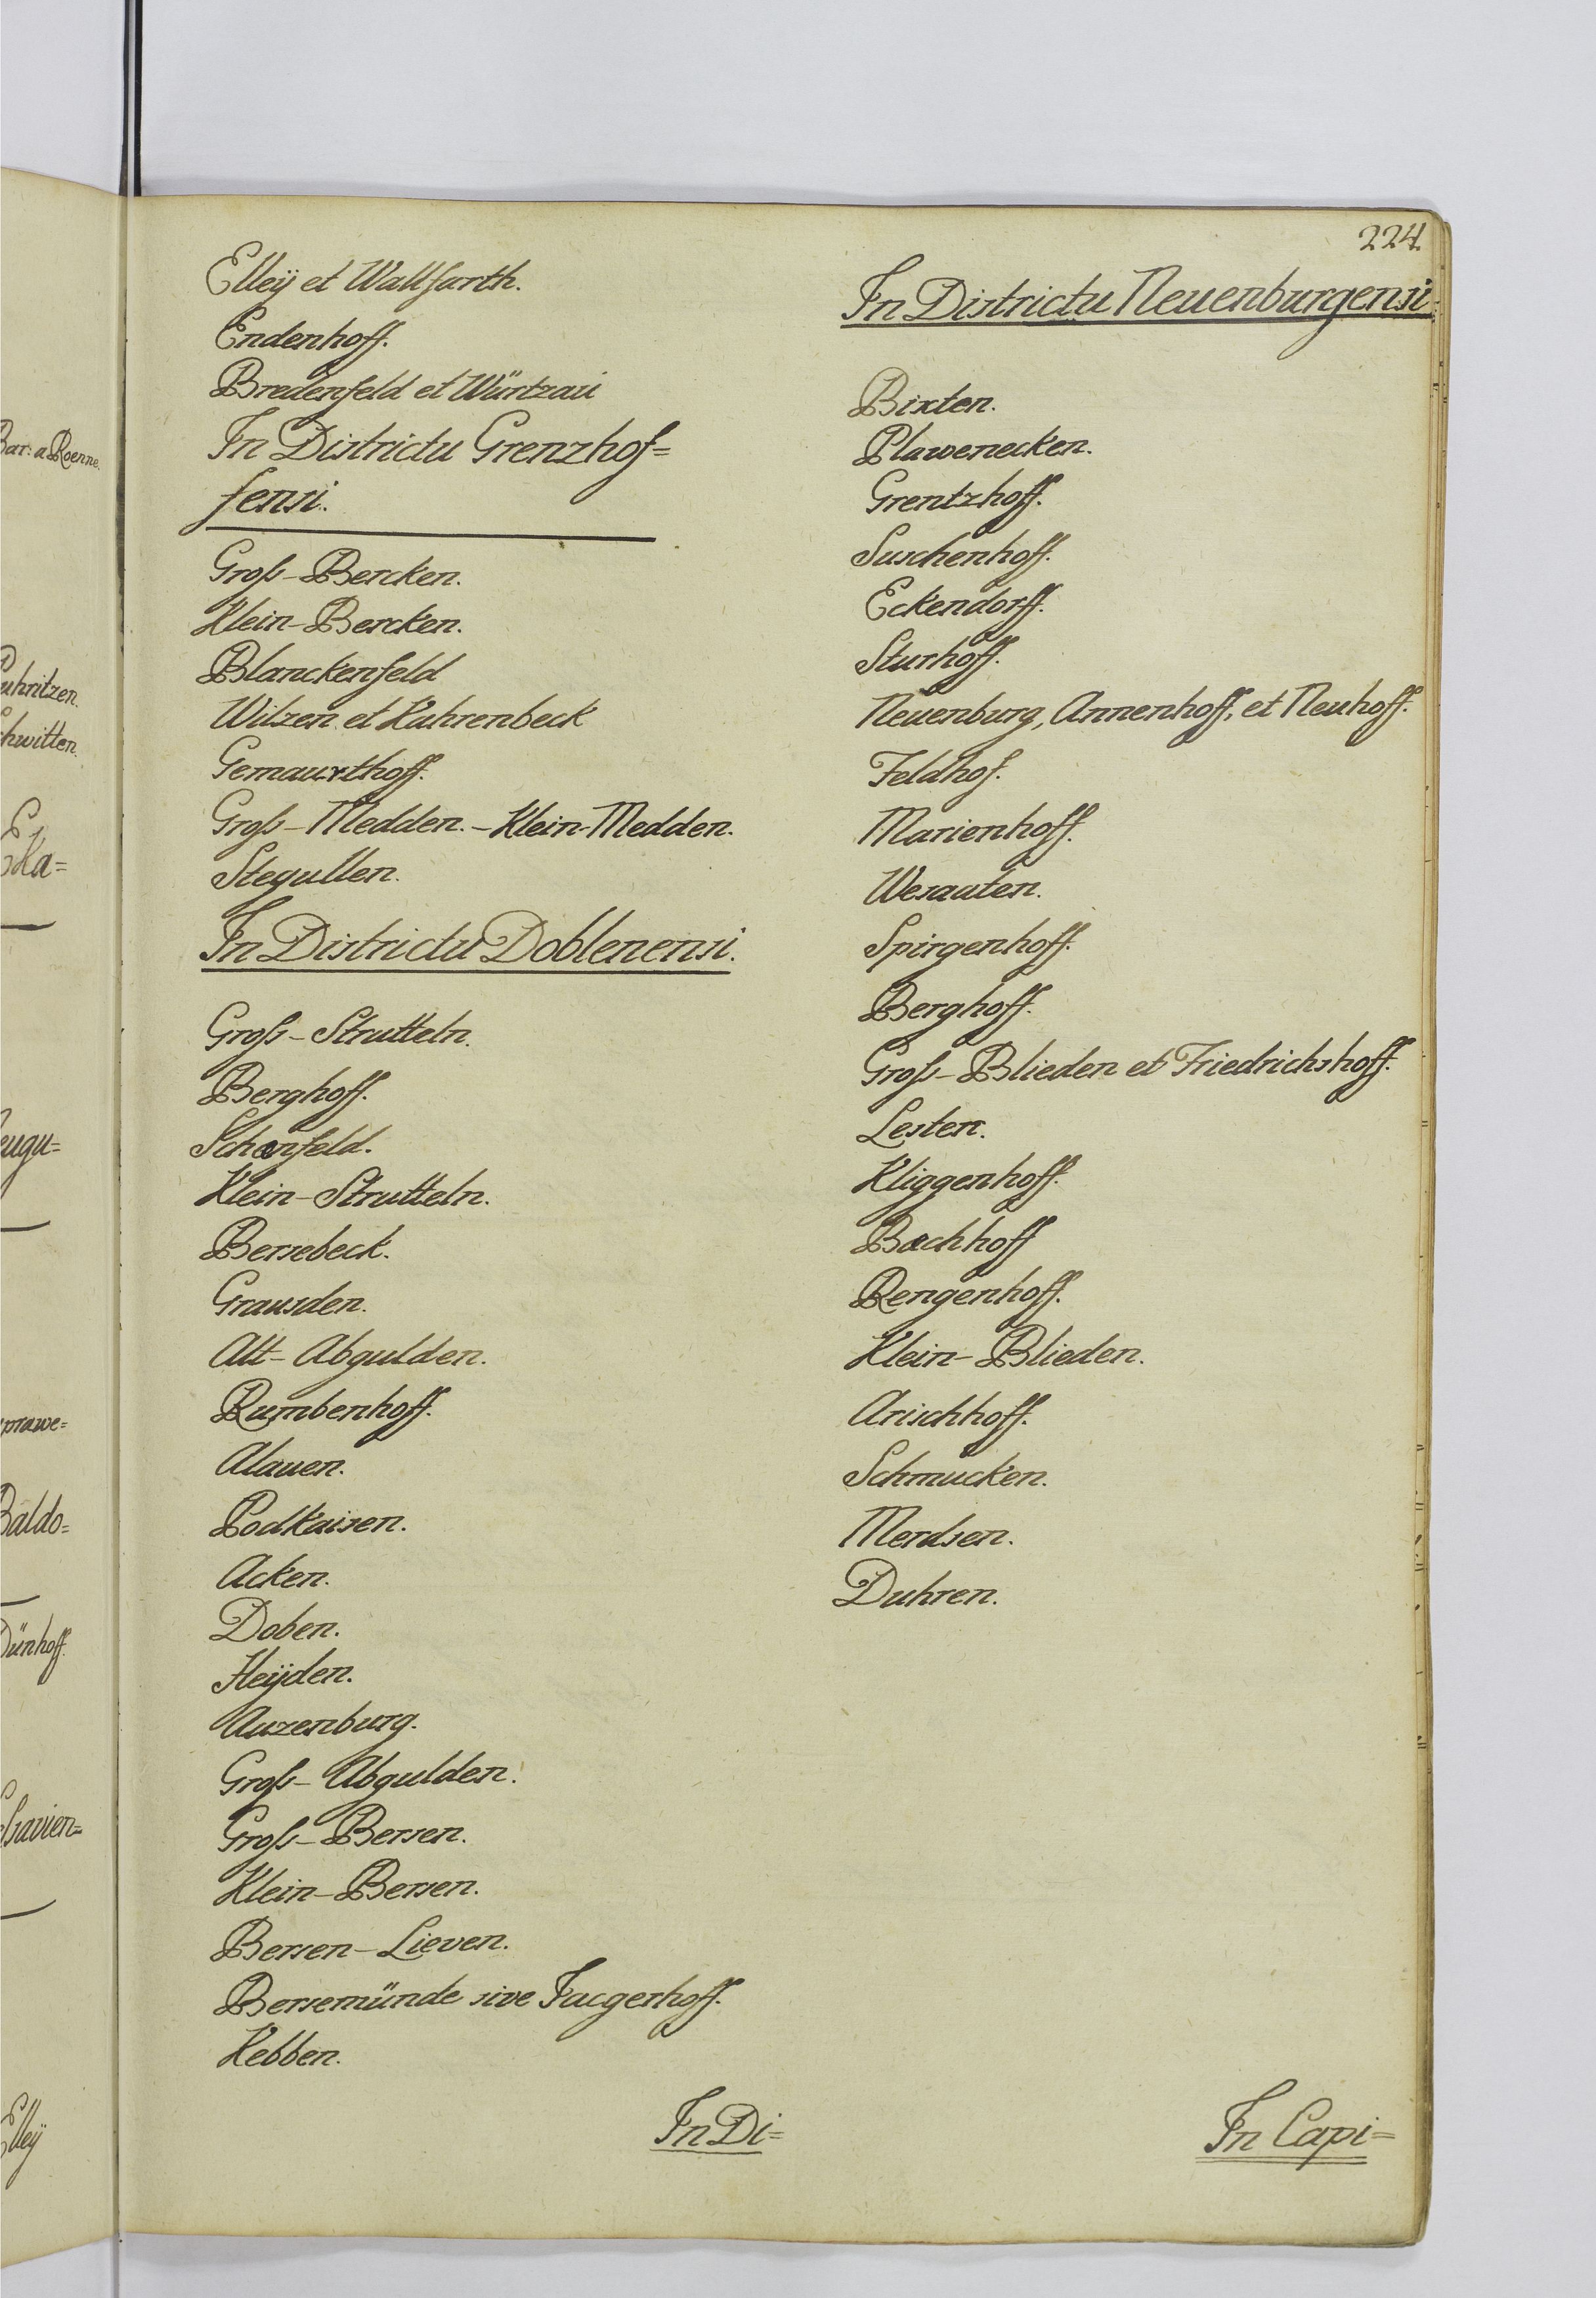 224.
Elleÿ et Wallfarth.
Endenhoff.
Bredenfeld et Würtzau
In Districtu Grenzhof=
fensi.
Groß-Bercken.
Klein-Bercken.
Blanckenfeld
Wilzen et Kahrenbeck
Gemaurthoff.
Groß-Medden.-Klein-Medden.
Stegullen.
In Districtu Doblenensi.
Groß-Strutteln.
Berghoff.
Schönfeld.
Klein-Strutteln.
Bersebeck.
Grausden.
Alt-Abgulden.
Rumbenhoff.
Alauen.
Podkaisen.
Acken.
Doben.
Heÿden.
Auzenburg.
Groß-Abgulden.
Groß-Bersen.
Klein-Bersen.
Bersen-Lieven.
Bersemünde sive Jacgerhoff.
Kebben.
In Di=
In Districtu Neuenburgensi.
Bixten.
Plawenecken.
Grentzhoff.
Suschenhoff.
Eckendorff.
Sturhoff.
Neuenburg, Annenhoff, et Neuhoff.
Feldhof.
Marienhoff.
Wesaaten.
Spirgenhoff.
Berghoff.
Groß-Blieden et Friedrichshoff.
Lesten.
Kliggenhoff.
Bachhoff
Rengenhoff.
Klein-Blieden.
Arischhoff.
Schmucken.
Merdsen.
Duhren.
In Capi=